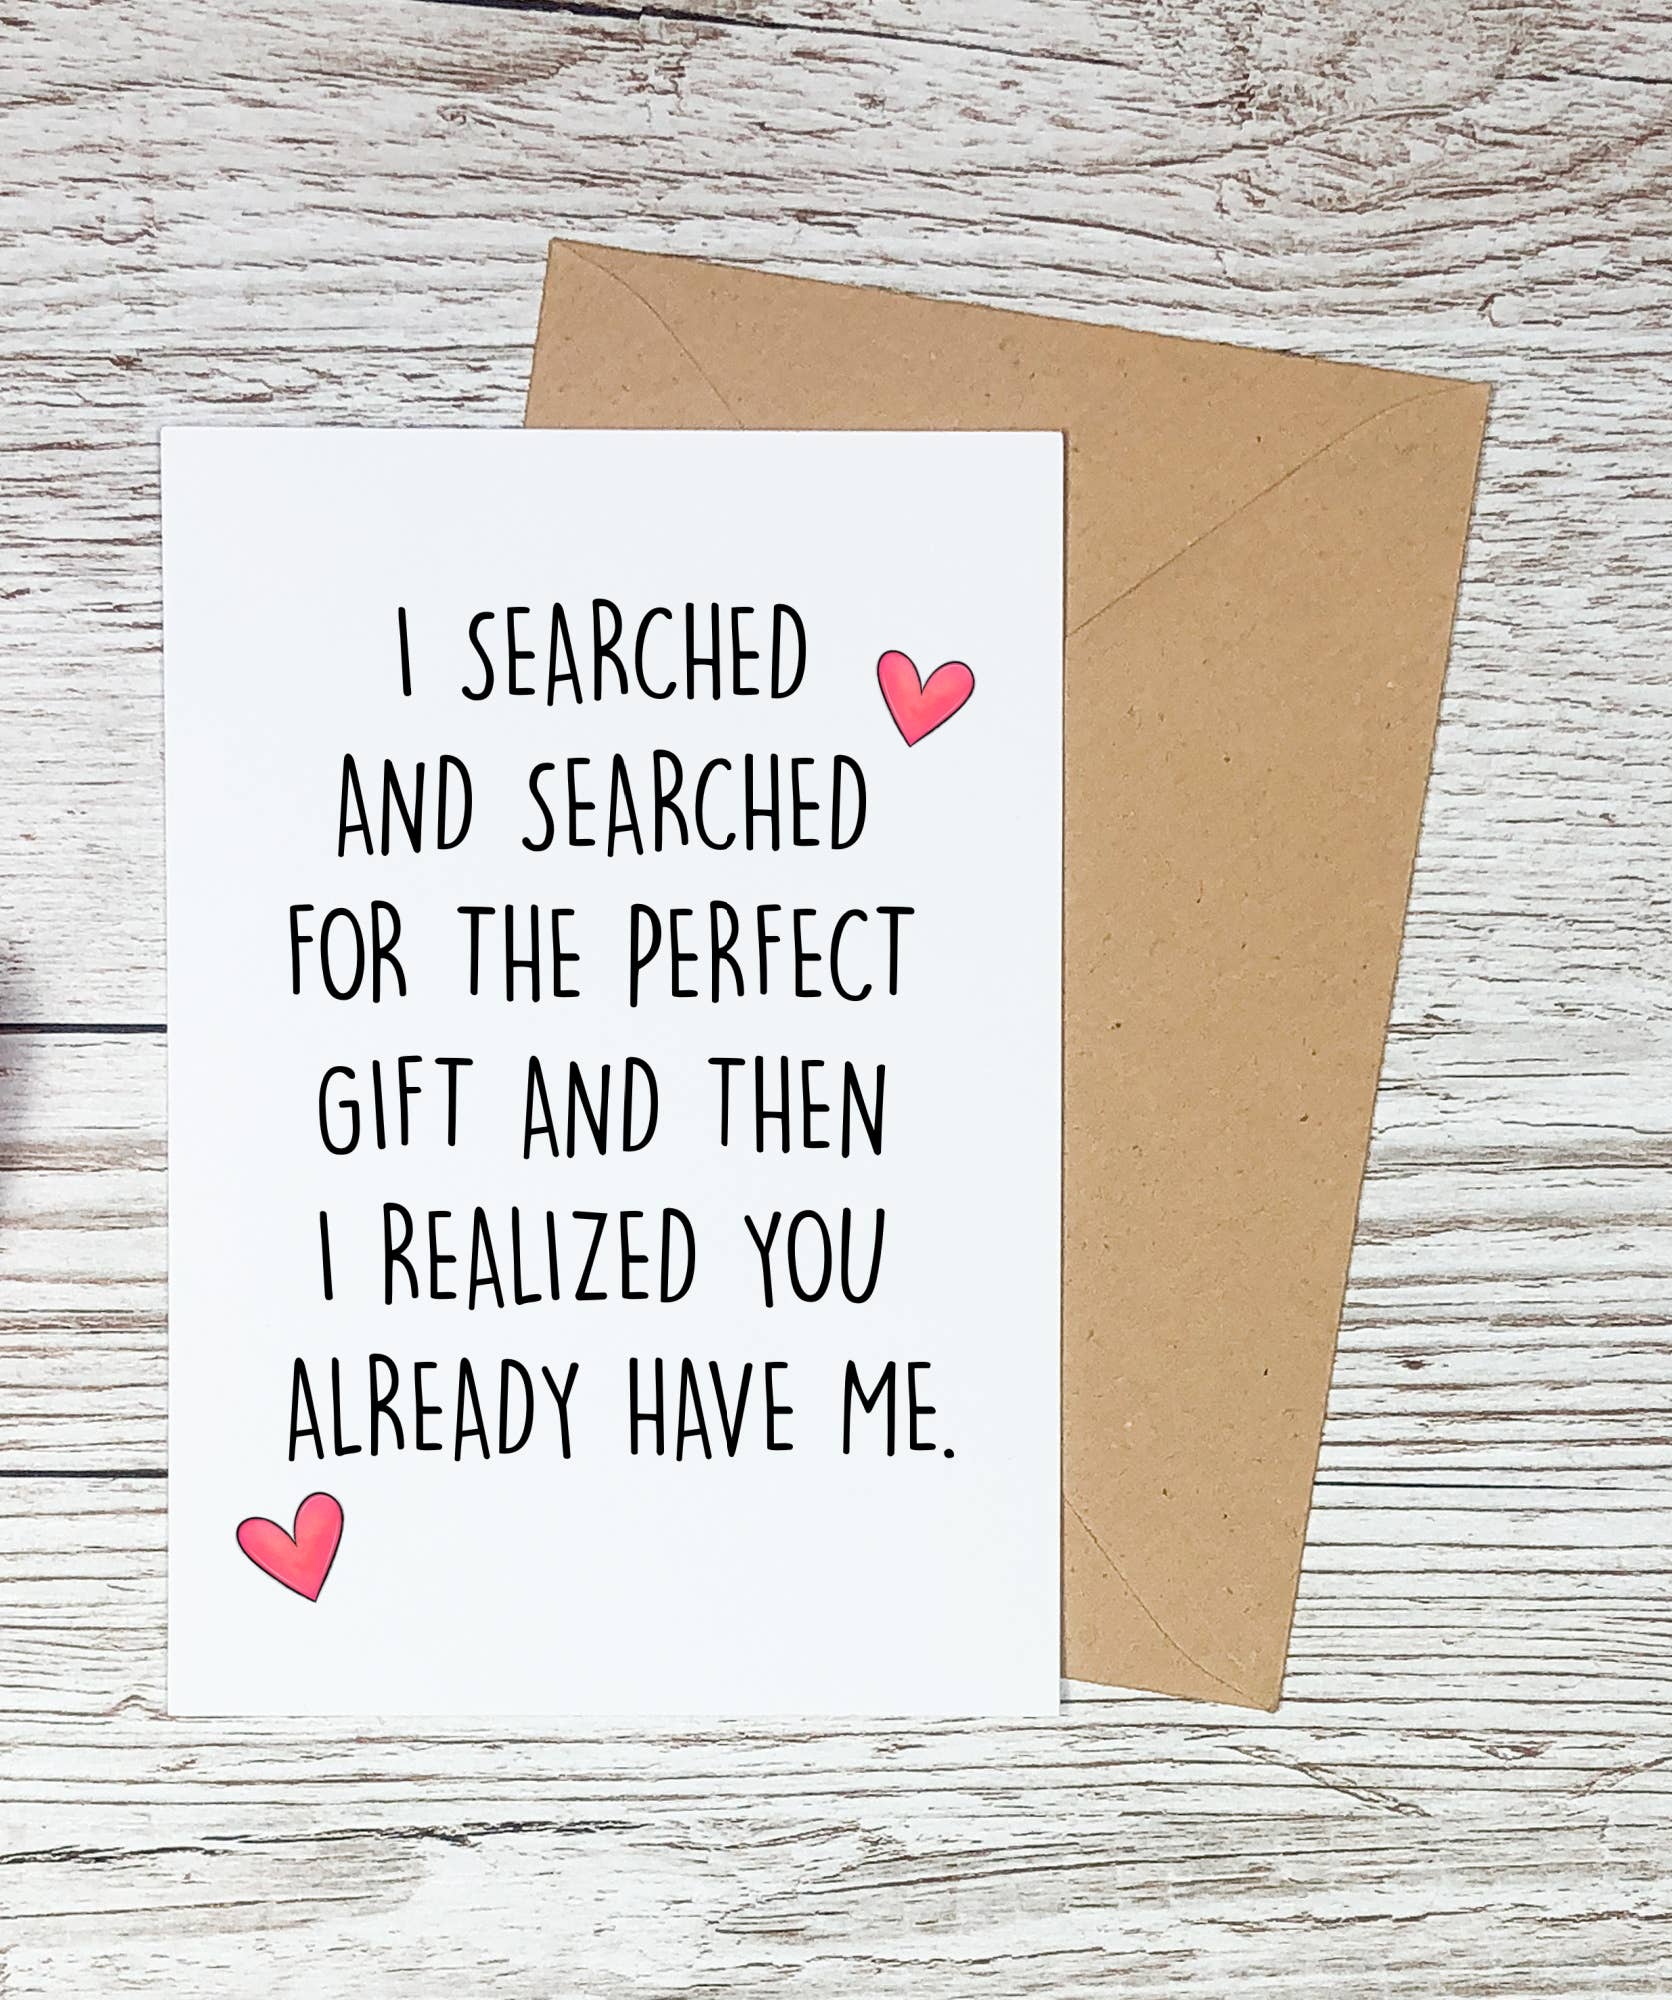 I SEARCHED
AND SEARCHED
FOR THE PERFECT
GIFT AND THEN
I REALIZED YOU
ALREADY HAVE ME.